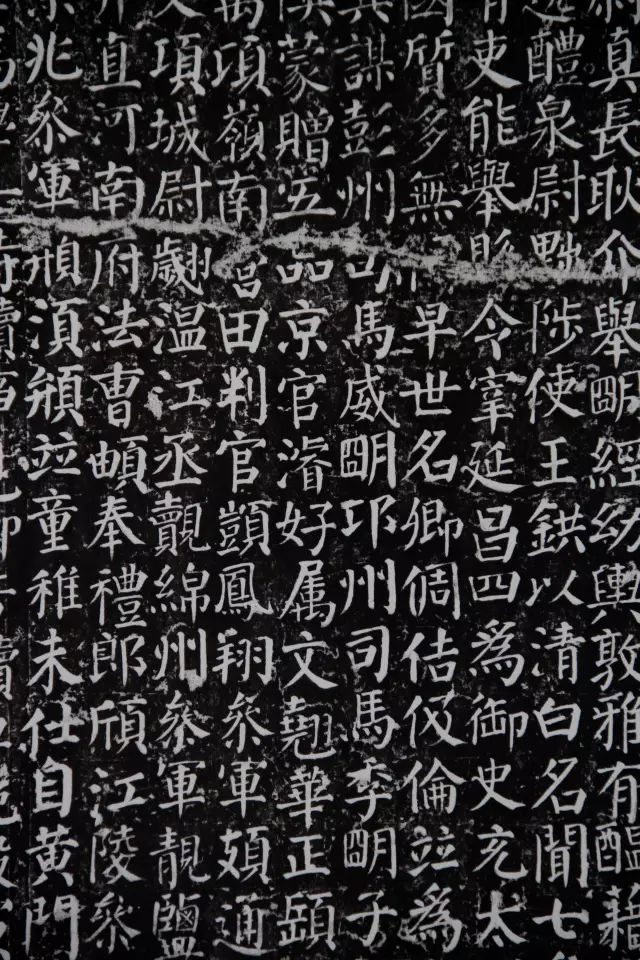 真長耿介舉明經幼輿敦雅有醞藉
醴泉尉黜陟使王鉷以清白名聞七
吏能舉縣令宰延昌四為御史充太
國質多無祿早世名卿倜佶伋倫並為
謀彭州司馬威明邛州司馬季明子
蒙贈五品京官濬好屬文翹華正頤
萬項嶺南營田判官顗鳳翔參軍頍通
項城尉翽温江丞覿綿州參軍靚鹽
直河南府法曹頔奉禮郎頎江陵參
兆參軍頠須頲並童稚未仕自黃門